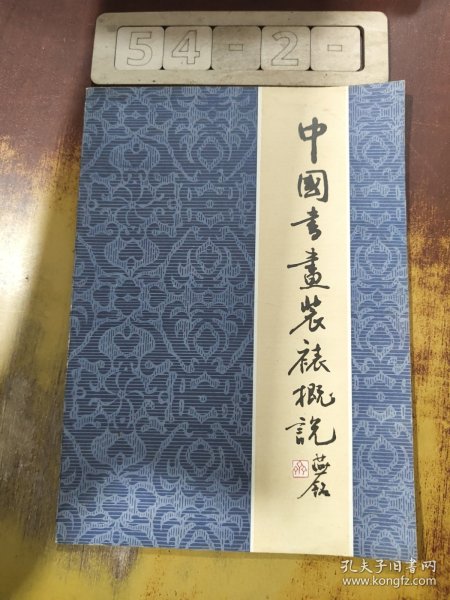 54-2-
中國書畫裝裱概說
燕銘
孔夫子旧书网
www.kongfz.com